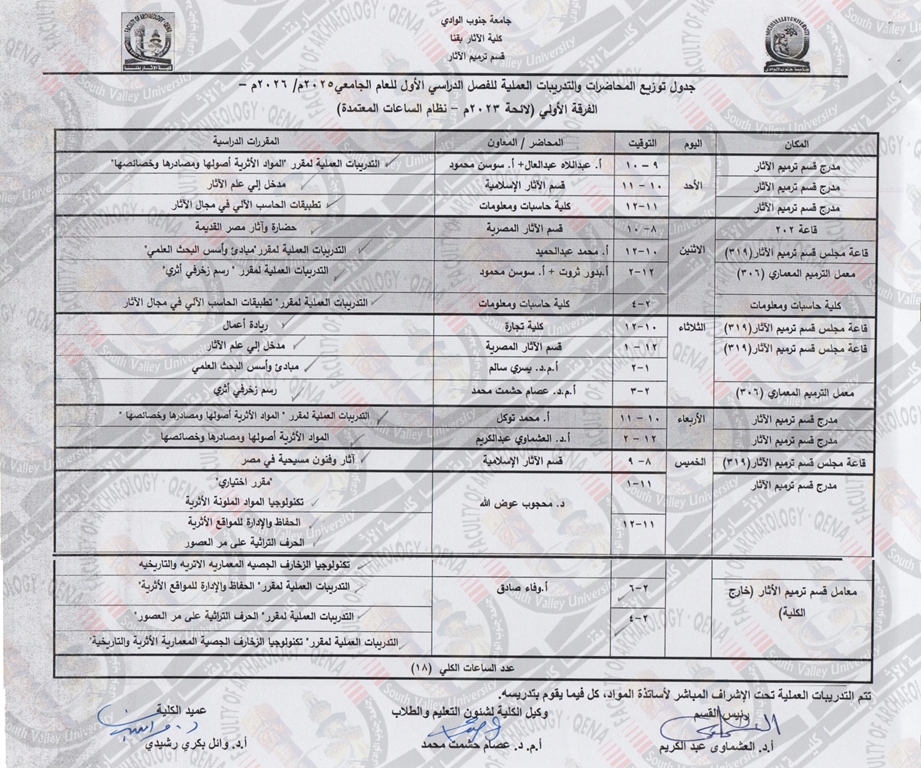 جامعة جنوب الوادي
كلية الآثار بقنا
قسم ترميم الآثار
جدول توزيع المحاضرات والتدريبات العملية للفصل الدراسي الأول للعام الجامعي ٢٠٢٥م/ ٢٠٢٦م –
الفرقة الأولي (لائحة ٢٠٢٣م – نظام الساعات المعتمدة)
المكان اليوم التوقيت المحاضر / المعاون المقررات الدراسية
مدرج قسم ترميم الآثار الأحد ٩ – ١٠ أ. عبداللاه عبدالعال+ أ. سوسن محمود التدريبات العملية لمقرر "المواد الأثرية أصولها ومصادرها وخصائصها"
مدرج قسم ترميم الآثار ١٠ – ١١ قسم الآثار الإسلامية مدخل إلي علم الآثار
مدرج قسم ترميم الآثار ١١–١٢ كلية حاسبات ومعلومات تطبيقات الحاسب الآلي في مجال الآثار
قاعة ٢٠٢ الاثنين ٨– ١٠ قسم الآثار المصرية حضارة وآثار مصر القديمة
قاعة مجلس قسم ترميم الآثار(٣١٩) ١٠–١٢ أ. محمد عبدالحميد التدريبات العملية لمقرر"مبادئ وأسس البحث العلمي"
معمل الترميم المعماري (٣٠٦) ١٢–٢ أ.بدور ثروت + أ. سوسن محمود التدريبات العملية لمقرر " رسم زخرفي أثري"
كلية حاسبات ومعلومات ٢–٤ كلية حاسبات ومعلومات التدريبات العملية لمقرر" تطبيقات الحاسب الآلي في مجال الآثار
قاعة مجلس قسم ترميم الآثار(٣١٩) الثلاثاء ١٠–١٢ كلية تجارة ريادة أعمال
قاعة مجلس قسم ترميم الآثار(٣١٩) ١٢–١ قسم الآثار المصرية مدخل إلي علم الآثار
١–٢ أ.م.د. يسري سالم مبادئ وأسس البحث العلمي
معمل الترميم المعماري (٣٠٦) ٢–٣ أ.م.د. عصام حشمت محمد رسم زخرفي أثري
مدرج قسم ترميم الآثار الأربعاء ١٠ – ١١ أ. محمد توكل التدريبات العملية لمقرر " المواد الأثرية أصولها ومصادرها وخصائصها "
مدرج قسم ترميم الآثار ١٢ – ٢ أ.د. العشماوي عبدالكريم المواد الأثرية أصولها ومصادرها وخصائصها
قاعة مجلس قسم ترميم الآثار(٣١٩) الخميس ٨– ٩ قسم الآثار الإسلامية آثار وفنون مسيحية في مصر
مدرج قسم ترميم الآثار ١١–١ د. محجوب عوض الله "مقرر اختياري"
تكنولوجيا المواد الملونة الأثرية
١١–١٢ الحفاظ والإدارة للمواقع الأثرية
الحرف التراثية على مر العصور
تكنولوجيا الزخارف الجصيه المعماريه الاثريه والتاريخيه
معامل قسم ترميم الآثار (خارج الكلية) ٢–٦ أ.وفاء صادق التدريبات العملية لمقرر" الحفاظ والإدارة للمواقع الأثرية"
٢–٤ التدريبات العملية لمقرر" الحرف التراثية على مر العصور"
التدريبات العملية لمقرر" تكنولوجيا الزخارف الجصية المعمارية الأثرية والتاريخية"
عدد الساعات الكلي (١٨)
تتم التدريبات العملية تحت الإشراف المباشر لأساتذة المواد، كل فيما يقوم بتدريسه.
رئيس القسم وكيل الكلية لشئون التعليم والطلاب عميد الكلية
أ.د. العشماوى عبد الكريم أ.م.د. عصام حشمت محمد أ.د. وائل بكري رشيدي